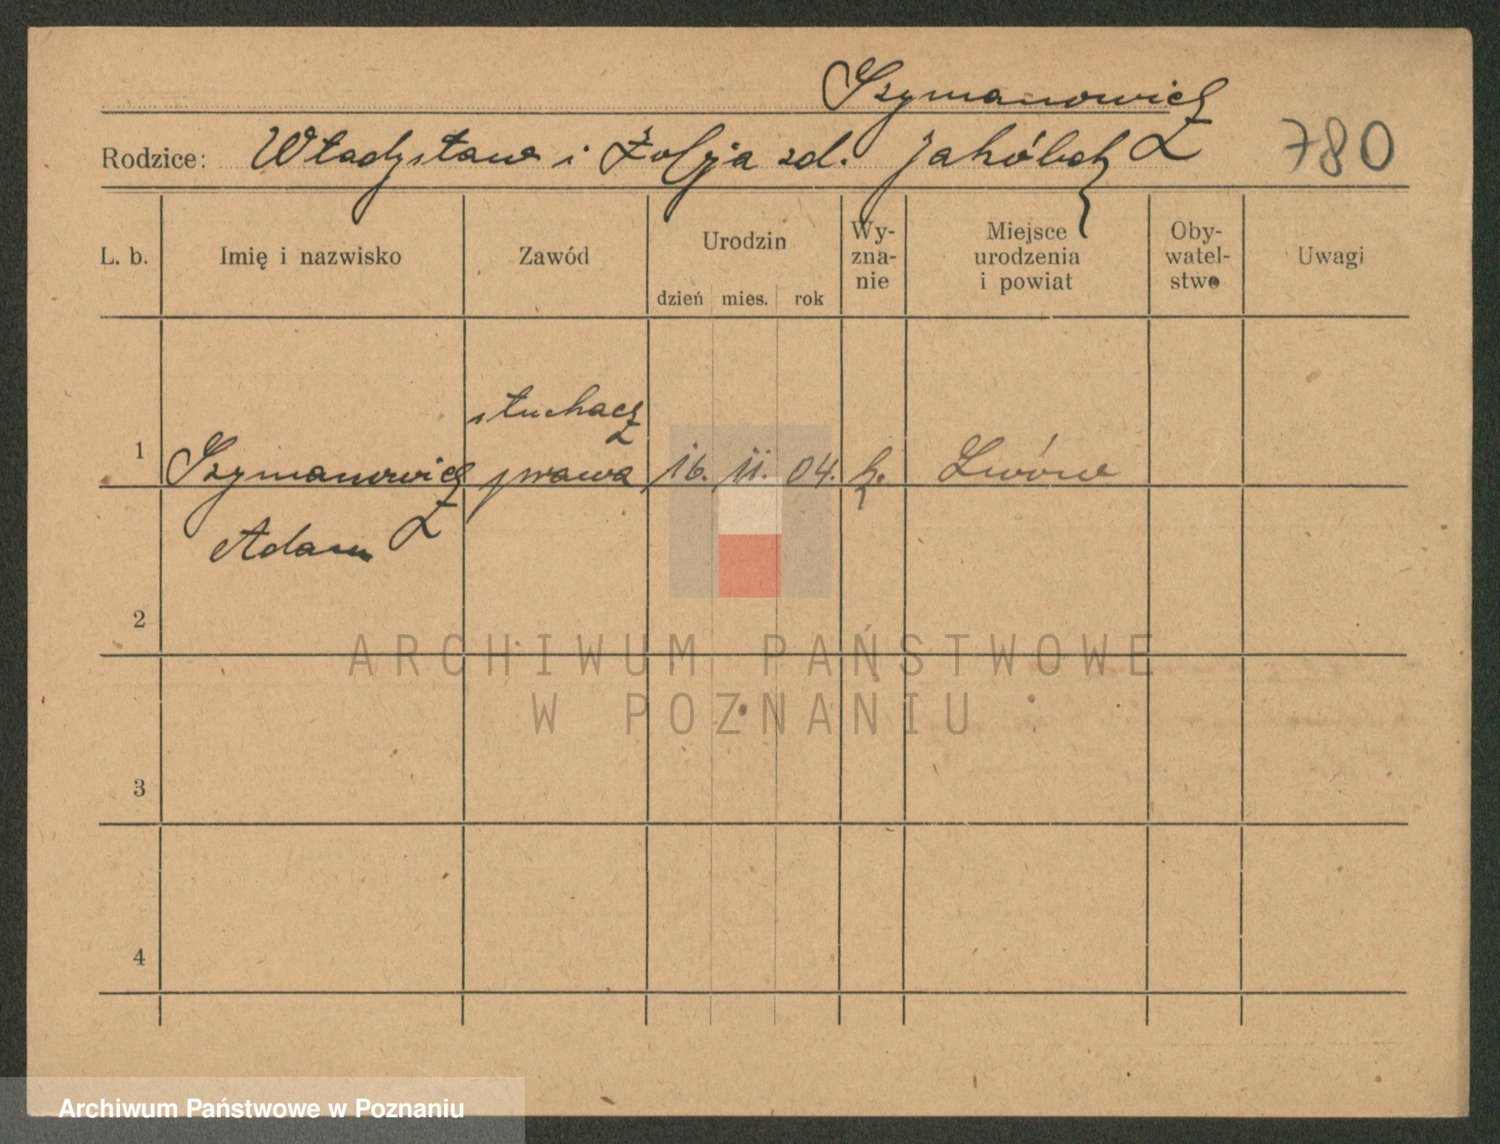 Szymanowicz
Rodzice: Władysław i Zofja zd. Jakóbcz
780
L. b. Imię i nazwisko Zawód Urodzin Wy-zna-nie Miejsce urodzenia i powiat Oby-watel-stwo Uwagi
dzień mies. rok
słuchacz
1 Szymanowicz prawa 16. II. 04. k. Lwów
Adam
2
ARCHIWUM PAŃSTWOWE
W POZNANIU
3
4
Archiwum Państwowe w Poznaniu